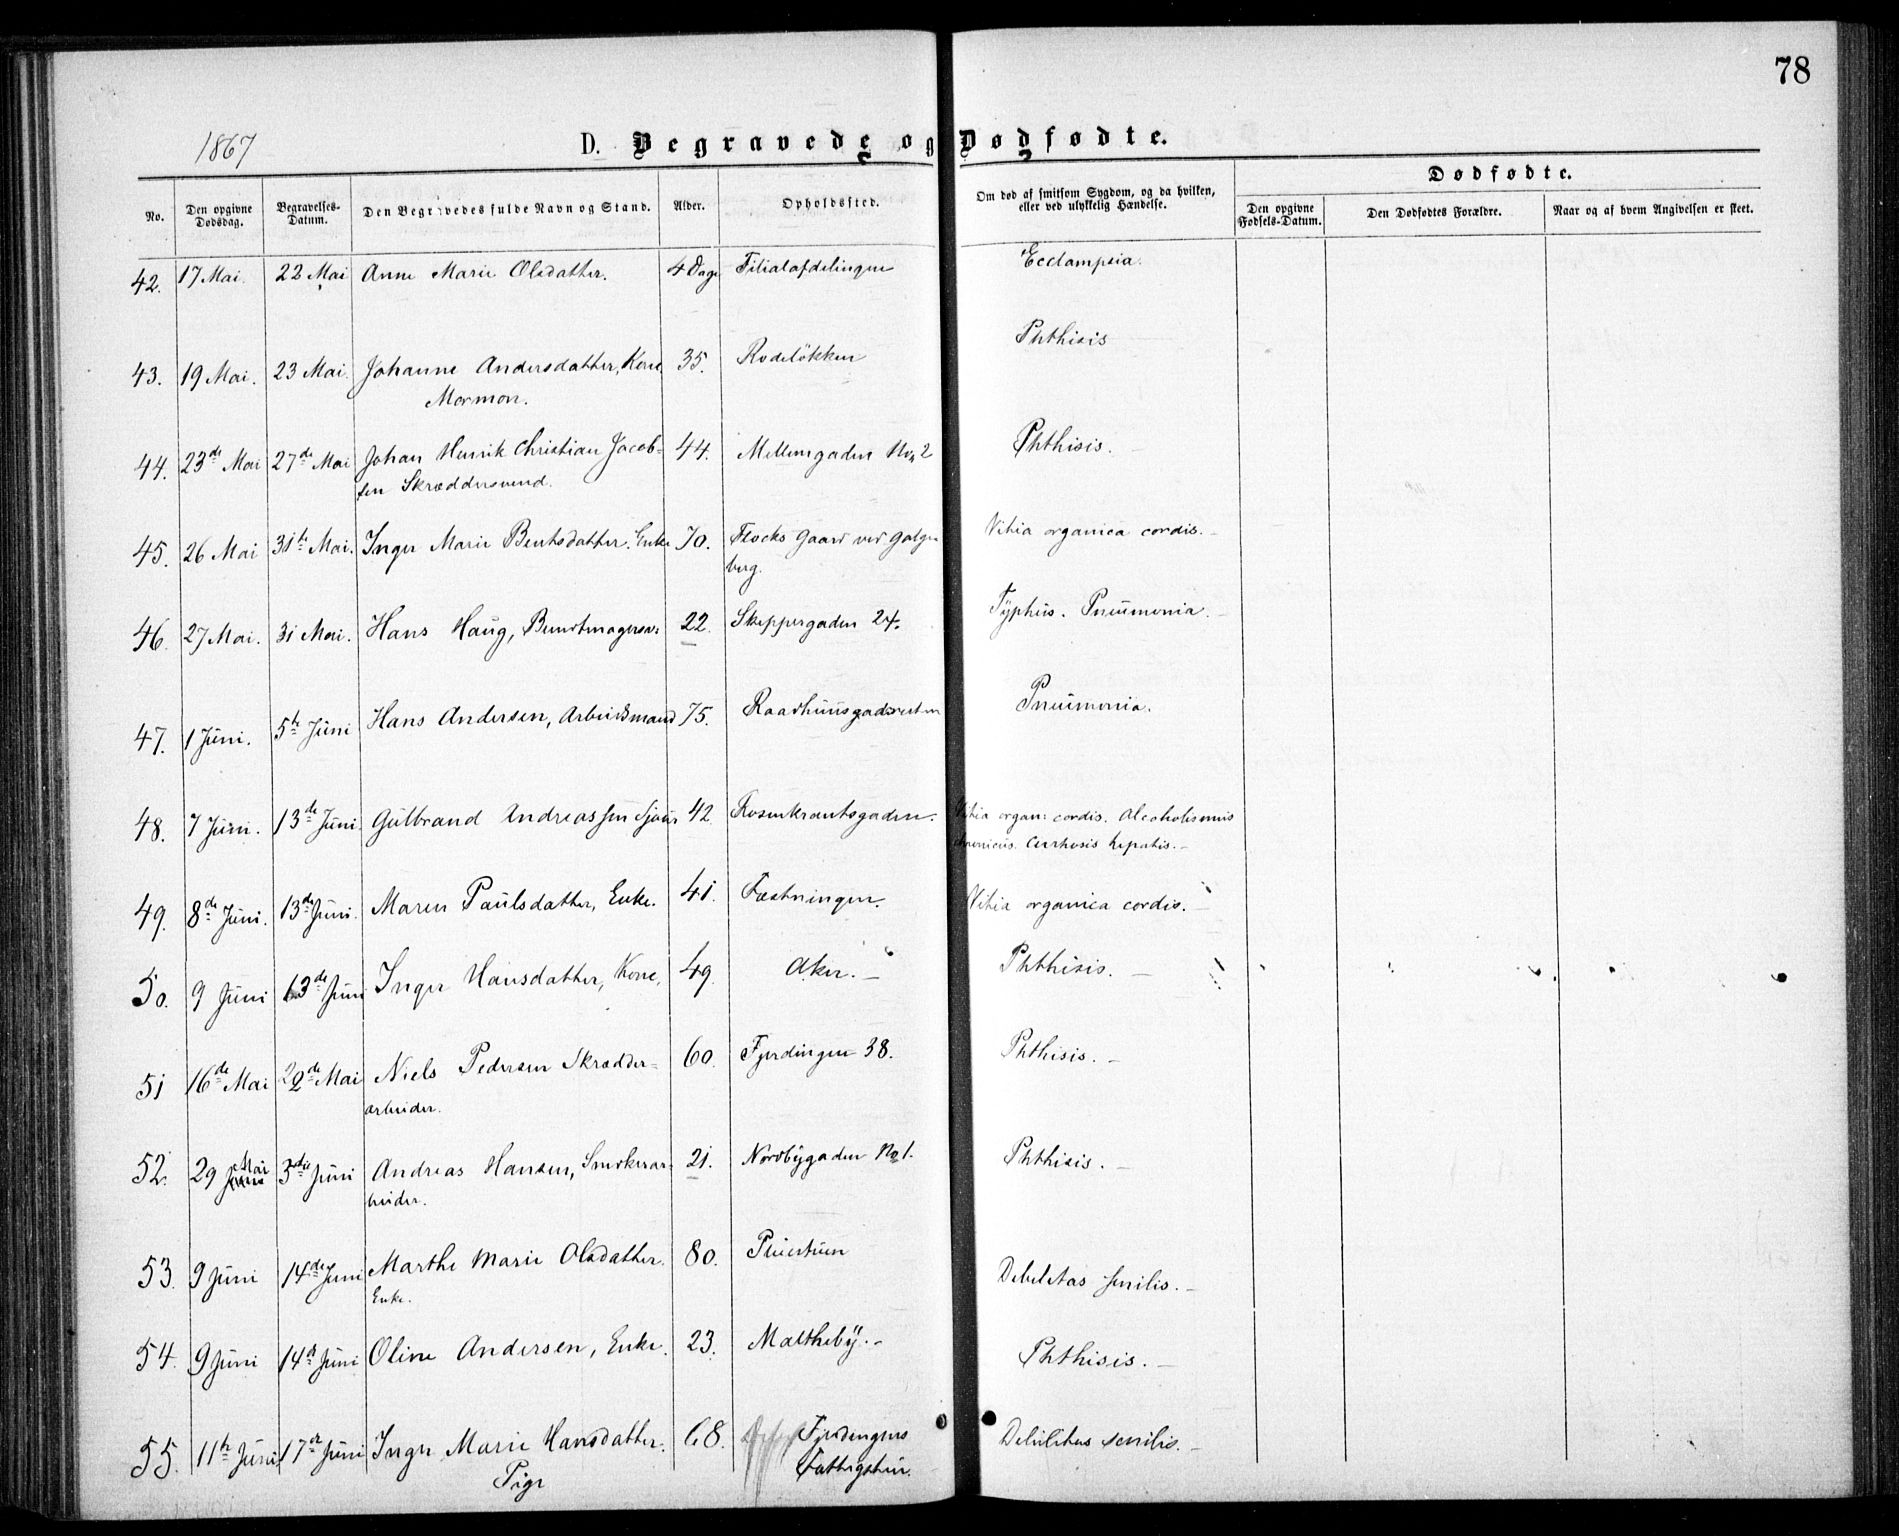 78
1867
D. Begravede og Dødfødte.
No. | Den opgivne Dødsdag. | Begravelses-Datum. | Den Begravedes fulde Navn og Stand. | Alder. | Opholdssted. | Om død af smitsom Sygdom, og da hvilken, eller ved ulykkelig Hændelse. | Dødfødte. | Den opgivne Fødsels-Datum. | Den Dødfødtes Forældre. | Naar og af hvem Angivelsen er skeet.
42. 17 Mai. 22 Mai Anne Marie Olsdatter. 4 Dage Filialafdelingen Ecclampsia.
43. 19 Mai. 23 Mai. Johanne Andersdatter, Kone, 35. Rodeløkken Phthisis
Mormon.
44. 23de Mai 27de Mai Johan Henrik Christian Jacob- 44. Mellemgaden No 2 Phthisis.
sen Skræddersvend.
45. 26 Mai 31te Mai. Inger Marie Bentsdatter. Enke 70. Flocks Gaard ved Galge- Vitia organica cordis.
berg.
46. 27 Mai. 31 Mai. Hans Haug, Buntmagersv: 22. Skippergaden 24. Typhus. Pneumonia.
47. 1 Juni. 5te Juni Hans Andersen, Arbeidsmand 75. Raadhuusgadarresten Pneumonia.
48. 7 Juni. 13de Juni. Gulbrand Andreassen Sjouer 42. Rosenkrantsgaden. Vitia organ: cordis. Alcoholismus
chronicus. Cirrhosis hepatis.
49. 8de Juni. 13de Juni. Maren Paulsdatter, Enke. 41. Fæstningen. Vitia organica cordis.
50. 9 Juni 13de Juni Inger Hansdatter, Kone, 49. Aker. Phthisis.
51 16de Mai 22de Mai Niels Pedersen Skrædder- 60. Fjerdingen 38. Phthisis.
arbeider.
52. 29 Mai 3die Juni Andreas Hansen, Smedearar- 21. Nordbygaden No 1. Phthisis.
beider.
53. 9 Juni 14de Juni Marthe Marie Olsdatter. 80. Debilitas senilis.
Enke.
54. 9 Juni 14de Juni Oline Andersen, Enke. 23. Maltheby. Phthisis.
55. 11te Juni 17de Juni Inger Marie Hansdatter. 68. Fjerdingens Debilitas senilis.
Pige Fattighus.